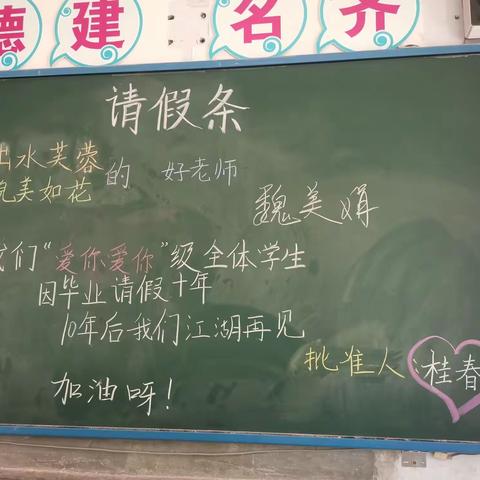 德建 名齐
请假条
出水芙蓉
魏美如花
的 好老师
魏美娟
我们“爱你爱你”级全体学生
因毕业请假十年
10年后我们江湖再见
批准人：桂春
加油呀！